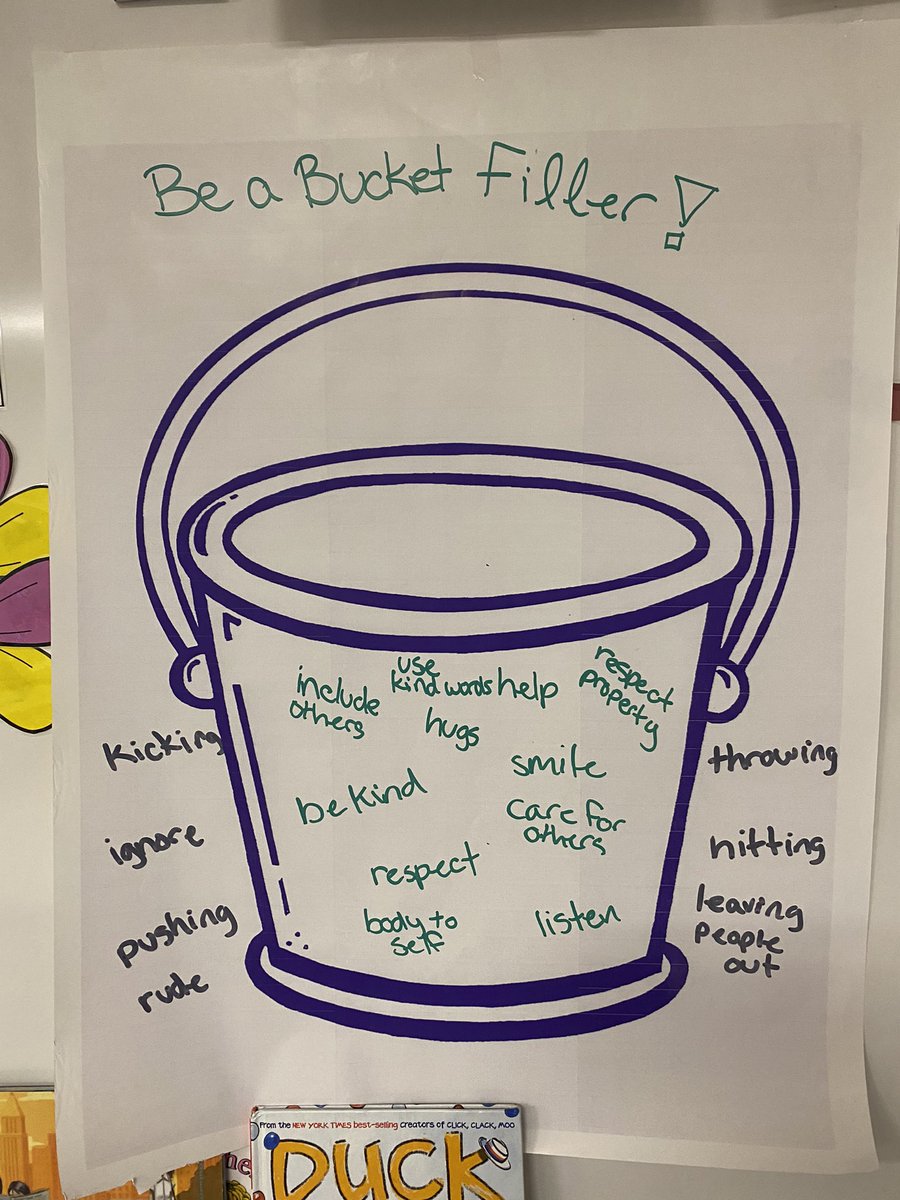 Be a Bucket Filler!
include
others
use
kind words
help
respect
property
hugs
be kind
smile
care for
others
respect
body to
self
listen
kicking
ignore
pushing
rude
throwing
hitting
leaving
people
out
From the NEW YORK TIMES best-selling creators of CLICK, CLACK, MOO
DUCK